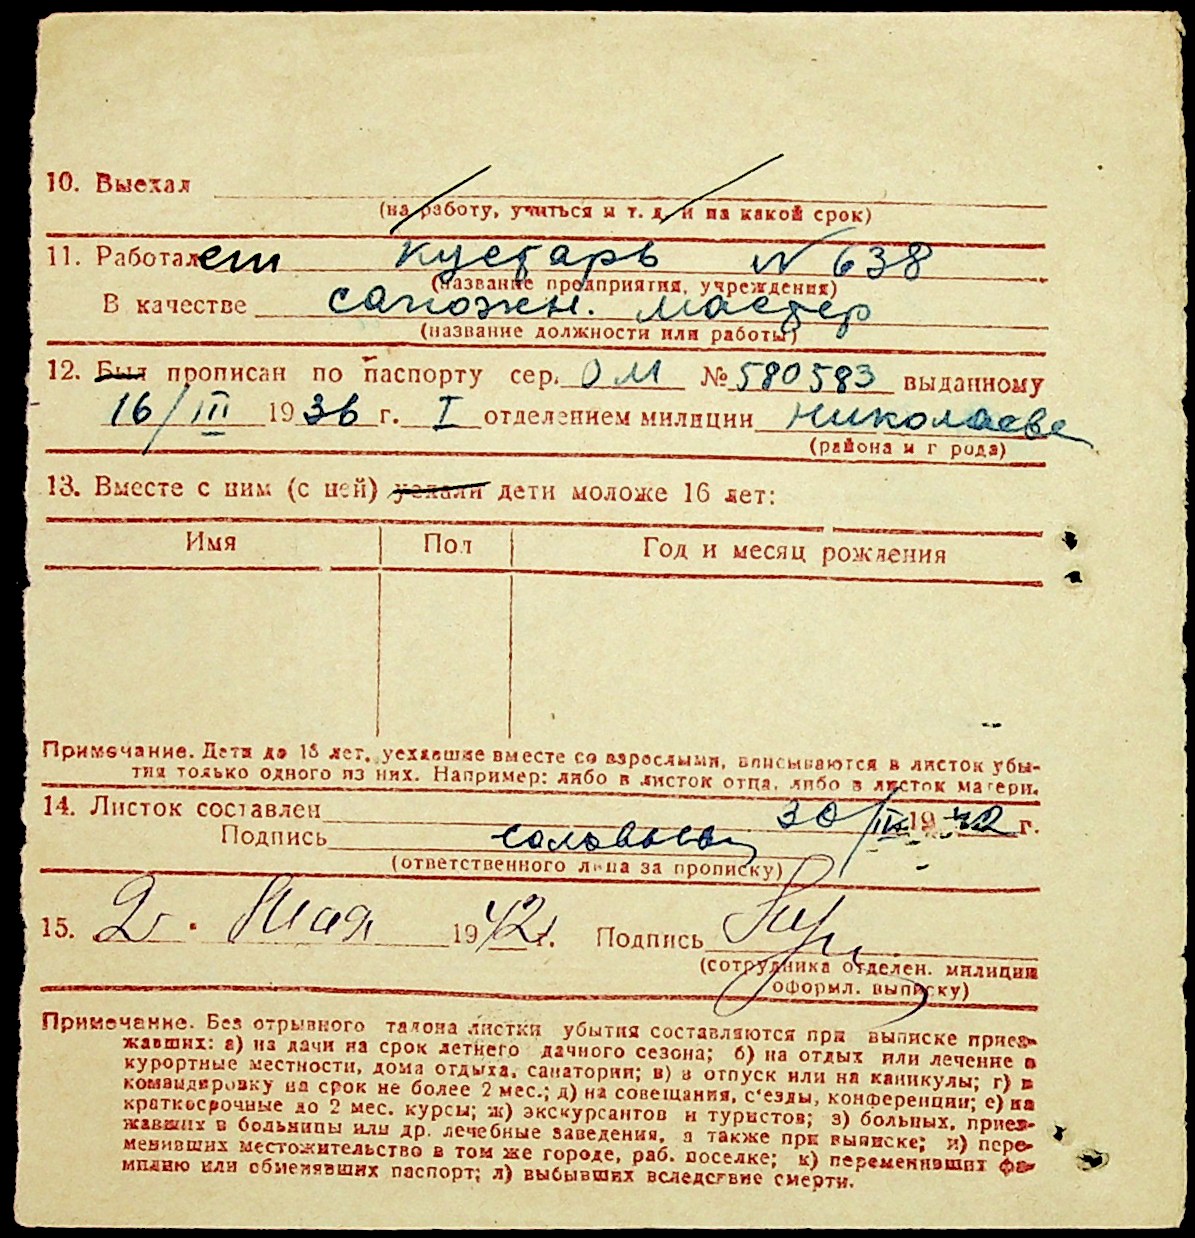 10. Выехал
(на работу, учиться и т. д. и на какой срок)
11. Работает кустарь № 638
(название предприятия, учреждения)
В качестве сапожн. мастер
(название должности или работы)
12. Был прописан по паспорту сер. ОМ № 580583 выданному
16/III 1936 г. I отделением милиции Николаева
(района и г рода)
13. Вместе с ним (с ней) уехали дети моложе 16 лет:
Имя Пол Год и месяц рождения
Примечание. Дети до 16 лет, уехавшие вместе со взрослыми, вписываются в листок убы-
тия только одного из них. Например: либо в листок отца, либо в листок матери.
14. Листок составлен 30/IV 1942 г.
Подпись
(ответственного лица за прописку)
15. 2 Мая 1942 г. Подпись
(сотрудника отделен. милиции
оформл. выписку)
Примечание. Без отрывного талона листки убытия составляются при выписке приез-
жавших: а) на дачи на срок летнего дачного сезона; б) на отдых или лечение в
курортные местности, дома отдыха, санатории; в) в отпуск или на каникулы; г) в
командировку на срок не более 2 мес.; д) на совещания, с'езды, конференции; е) на
краткосрочные до 2 мес. курсы; ж) экскурсантов и туристов; з) больных, приез-
жавших в больницы или др. лечебные заведения, а также при выписке; и) пере-
менивших местожительство в том же городе, раб. поселке; к) переменивших фа-
милию или обменявших паспорт; л) выбывших вследствие смерти.